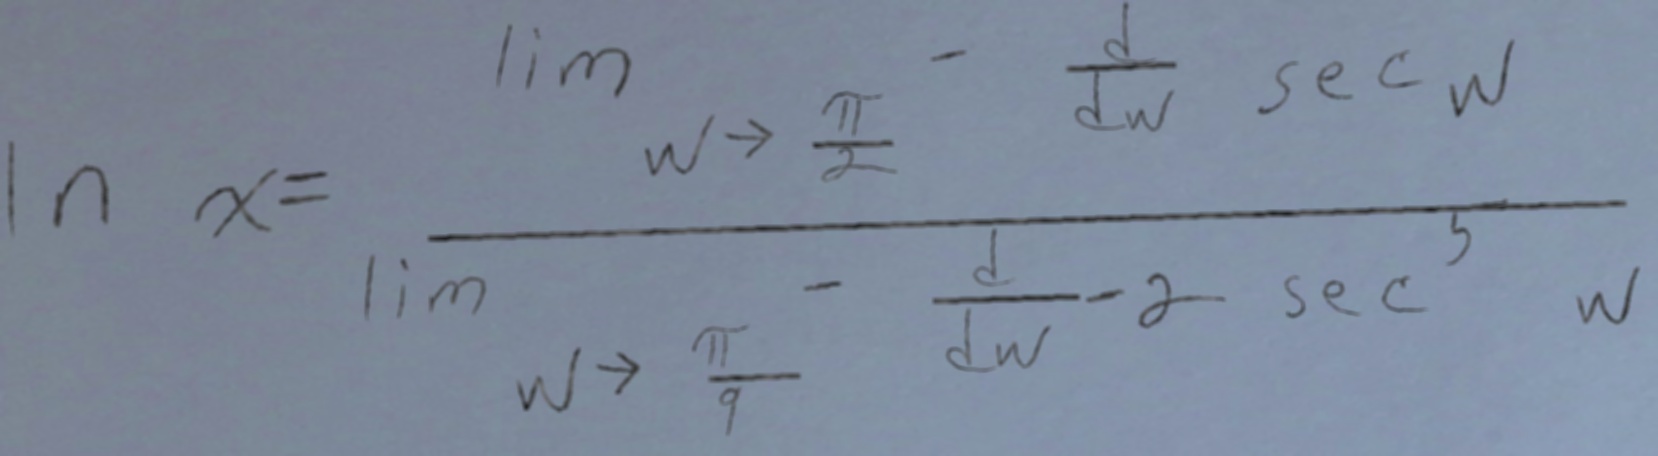 \ln x = \frac{\lim_{w \to \frac{\pi}{2}^-} \frac{d}{dw} \sec w}{\lim_{w \to \frac{\pi}{9}^-} \frac{d}{dw} -2 \sec^5 w}